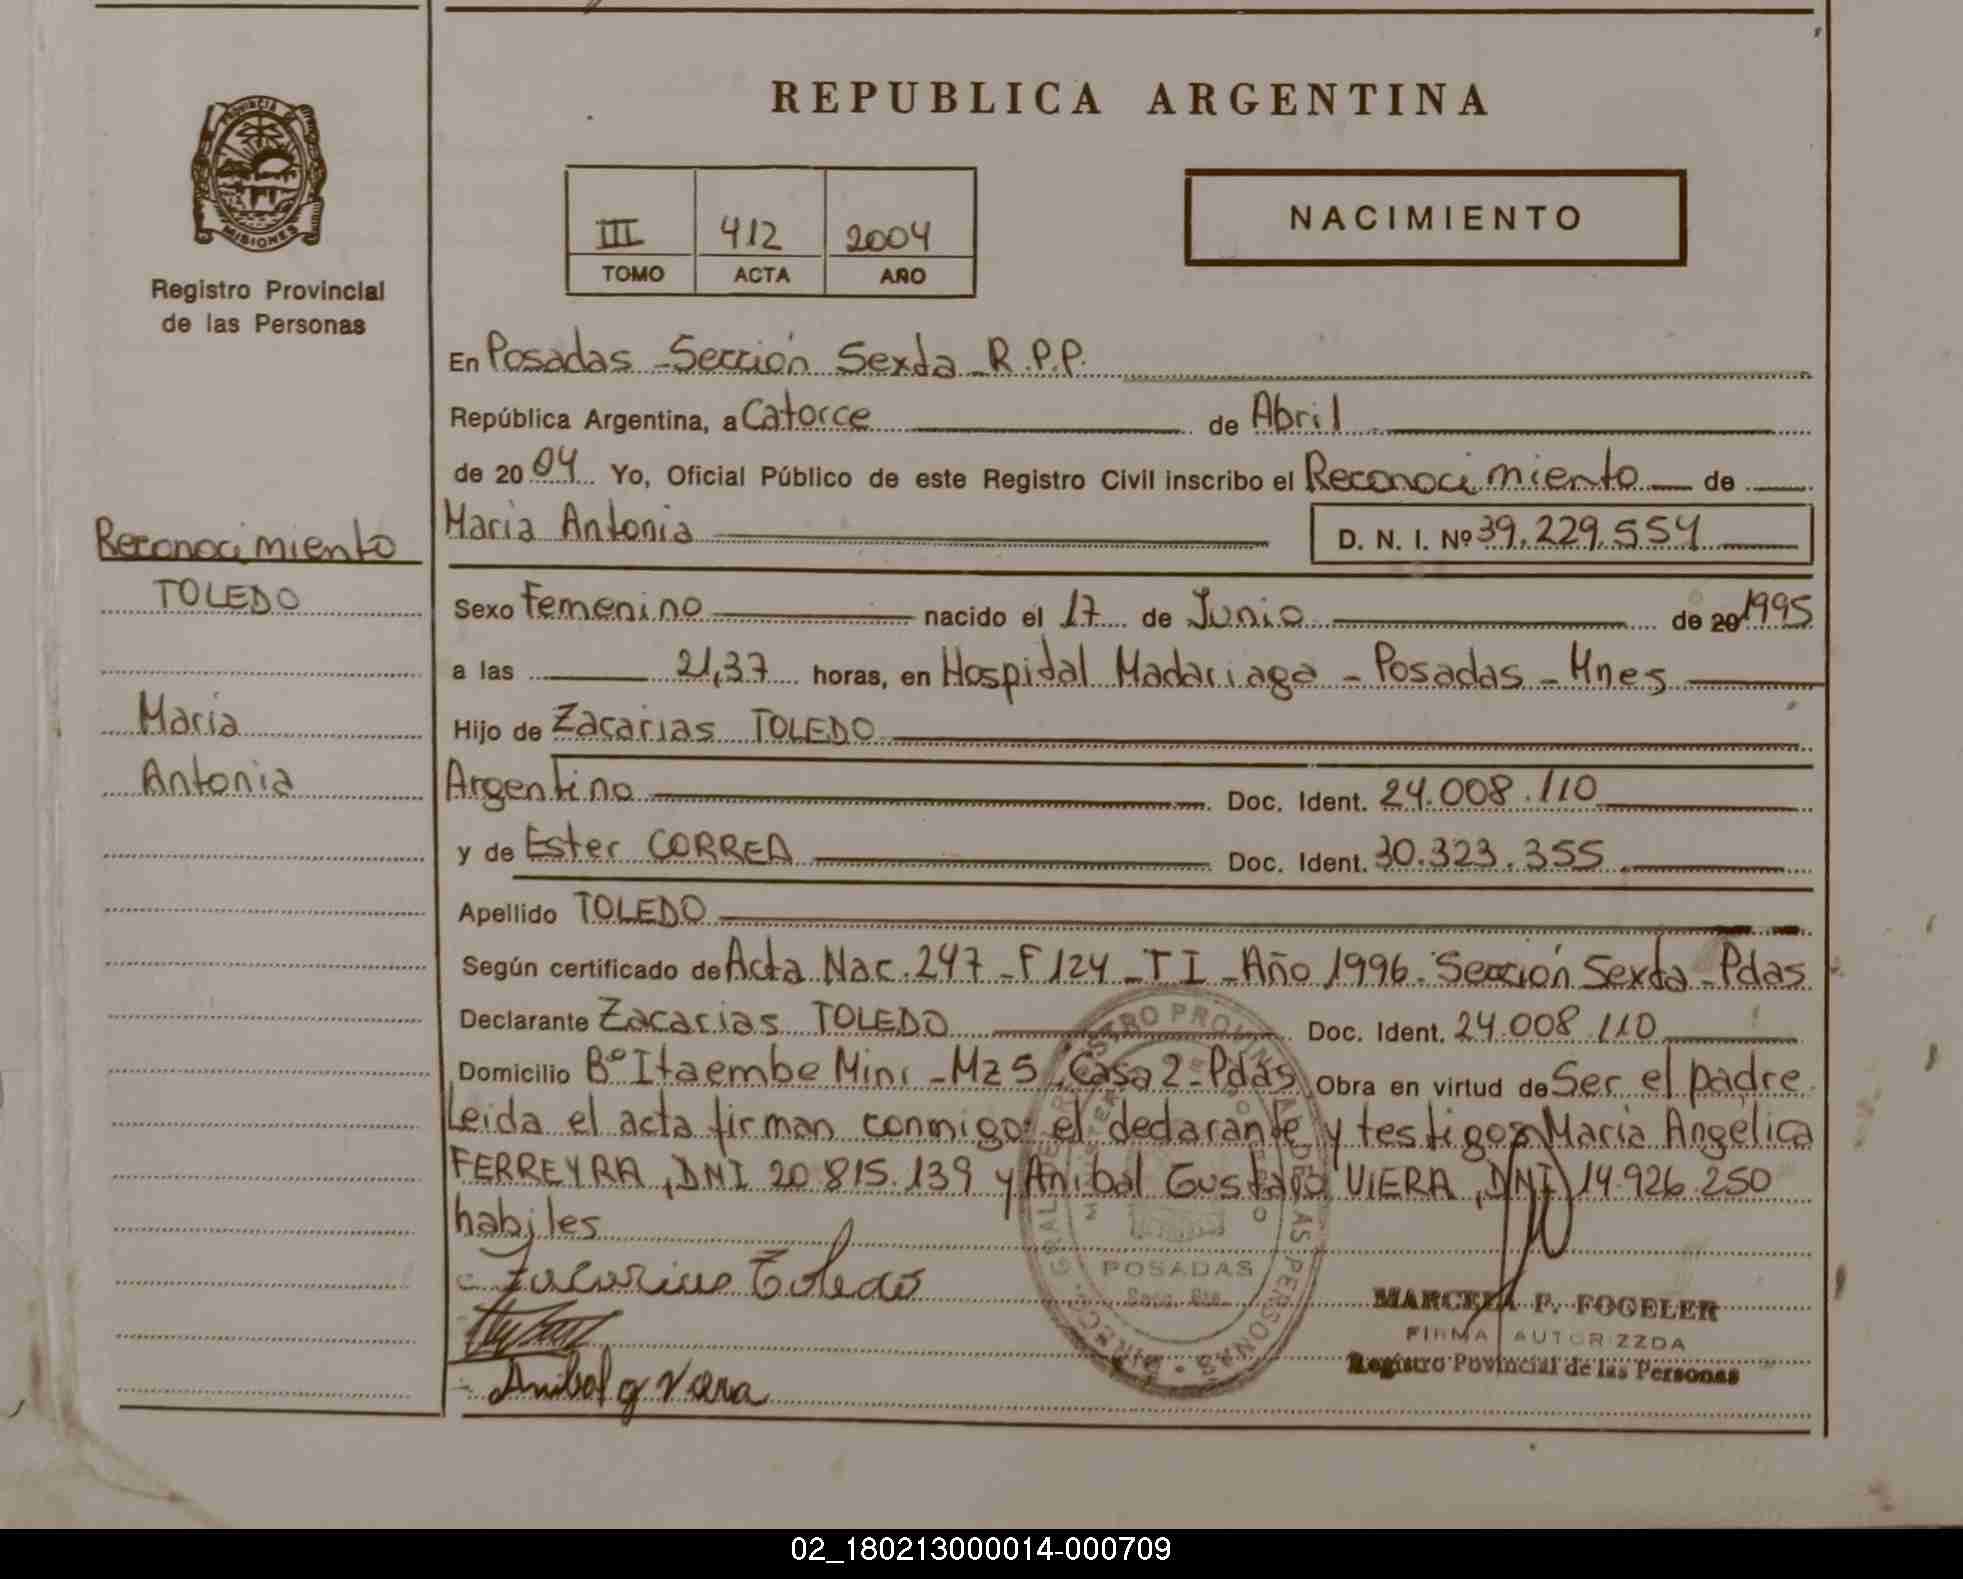 REPUBLICA ARGENTINA
PROVINCIA DE
MISIONES
Registro Provincial
de las Personas
III 412 2004
TOMO ACTA AÑO
NACIMIENTO
En Posadas - Sección Sexta - R.P.P.
República Argentina, a Catorce de Abril
de 2004 Yo, Oficial Público de este Registro Civil inscribo el Reconocimiento de
Maria Antonia D. N. I. Nº 39.229.554
Reconocimiento
TOLEDO
Maria
Antonia
Sexo Femenino nacido el 17 de Junio de 20 1995
a las 21,37 horas, en Hospital Madariaga - Posadas - Mnes
Hijo de Zacarias TOLEDO
Argentino Doc. Ident. 24.008.110
y de Ester CORREA Doc. Ident. 30.323.355
Apellido TOLEDO
Según certificado de Acta Nac. 247 - F 124 - T I - Año 1996. Sección Sexta - Pdas
Declarante Zacarias TOLEDO Doc. Ident. 24.008.110
Domicilio Bº Itaembe Mini - Mz 5, Casa 2 - Pdas Obra en virtud de Ser el padre
Leida el acta firman conmigo: el declarante y testigos Maria Angélica
FERREYRA, DNI 20.815.139 y Anibal Gustavo VIERA, DNI 14.926.250
habiles
Zacarias Toledo
Anibal g Viera
POSADAS
Secc. 6ta.
MARCELA F. FOGELER
FIRMA AUTORIZZDA
Registro Povincial de las Personas
02_180213000014-000709